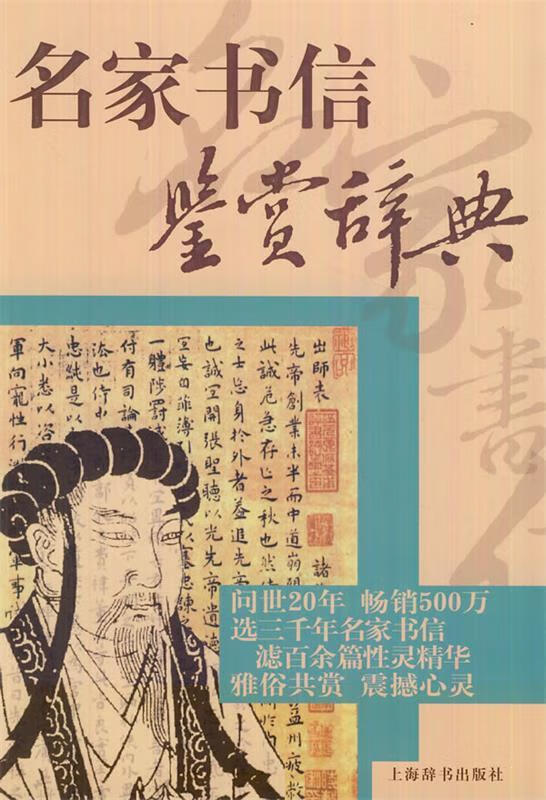 名家书信
鉴赏辞典
出師表
先帝創業未半而中道崩
此誠危急存亡之秋也然
之士忘身於外者蓋追先帝
也誠宜開張聖聽以光先帝遺德
宜妄自菲薄引
以塞忠諫之
一體陟罰
付有司論
法也侍中
忠純是以
大小悉以咨
軍向寵性行
諸
益州疲敝
问世20年 畅销500万
选三千年名家书信
滤百余篇性灵精华
雅俗共赏 震撼心灵
上海辞书出版社